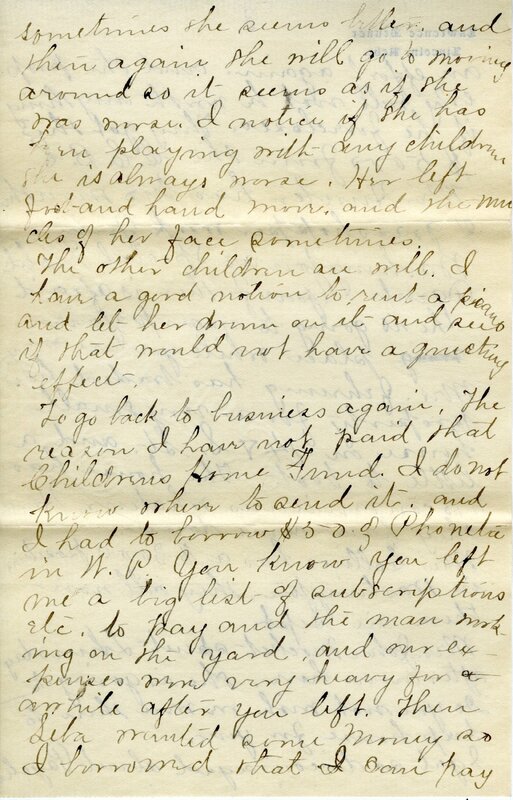 sometimes she seems better. and
then again she will go to moving
around so it seems as if she
was worse. I notice if she has
been playing with any children
she is always worse. Her left
foot and hand move. and the mus
cles of her face sometimes.
The other children are well. I
have a good notion to rent a piano
and let her drum on it and see
if that would not have a quieting
effect.
To go back to business again. The
reason I have not paid that
Childrens Home Fund. I do not
know where to send it. and
I had to borrow $50. of Phonetie
in W. P. You know you left
me a big list of subscriptions
etc. to pay and the man work
ing on the yard. and our ex-
penses were very heavy for a
awhile after you left. Then
wanted some money so
I borrowed that I can pay